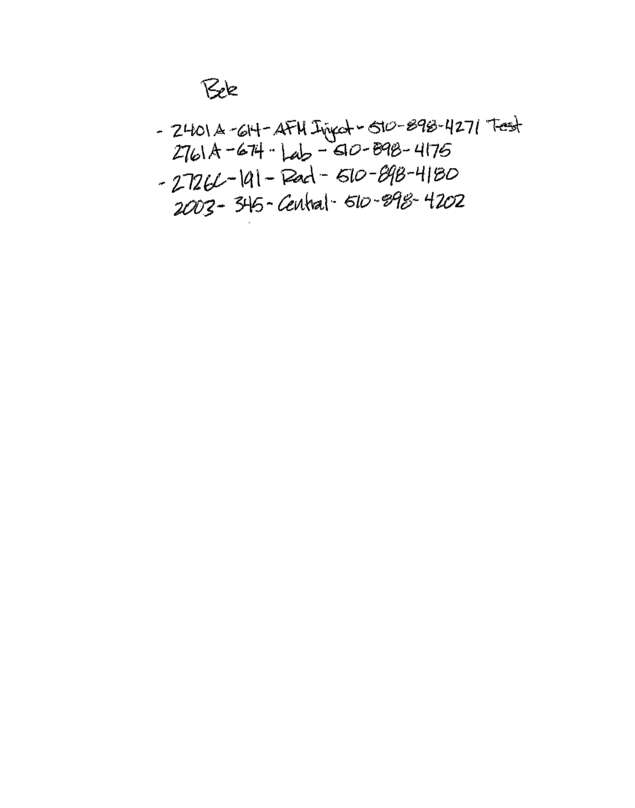 - 2401A-614-AFM Inject-510-898-4271 Test
2761A-674-Lab-510-898-4175
-2726C-191-Rad-510-898-4180
2003-345-Central-510-898-4202